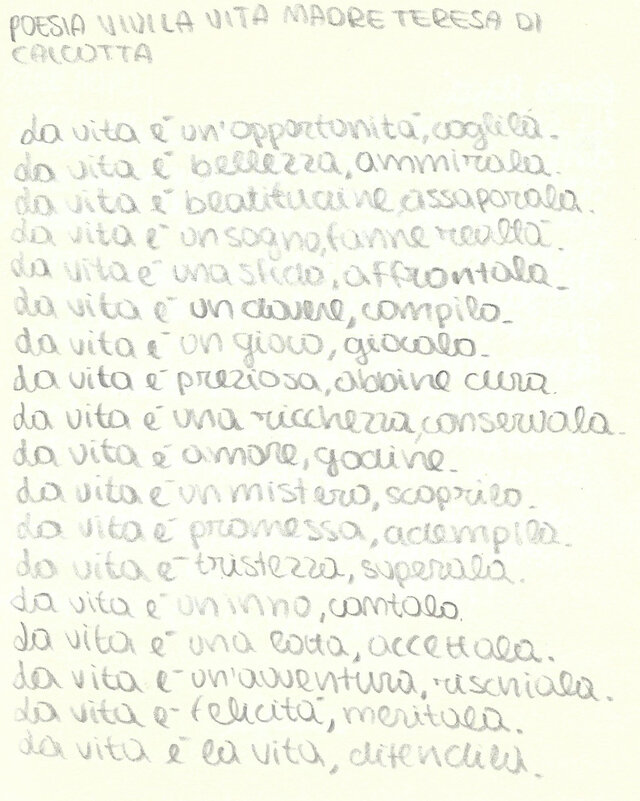 POESIA VIVI LA VITA MADRE TERESA DI
CALCUTTA
La vita è un'opportunità, coglila.
La vita è bellezza, ammirala.
La vita è beatitudine, assaporala.
La vita è un sogno, fanne realtà.
La vita è una sfida, affrontala.
La vita è un dovere, compilo.
La vita è un gioco, giocalo.
La vita è preziosa, abbine cura.
La vita è una ricchezza, conservala.
La vita è amore, godine.
La vita è un mistero, scoprilo.
La vita è promessa, adempila.
La vita è tristezza, superala.
La vita è un inno, cantalo.
La vita è una lotta, accettala.
La vita è un'avventura, rischiala.
La vita è felicità, meritala.
La vita è la vita, difendila.